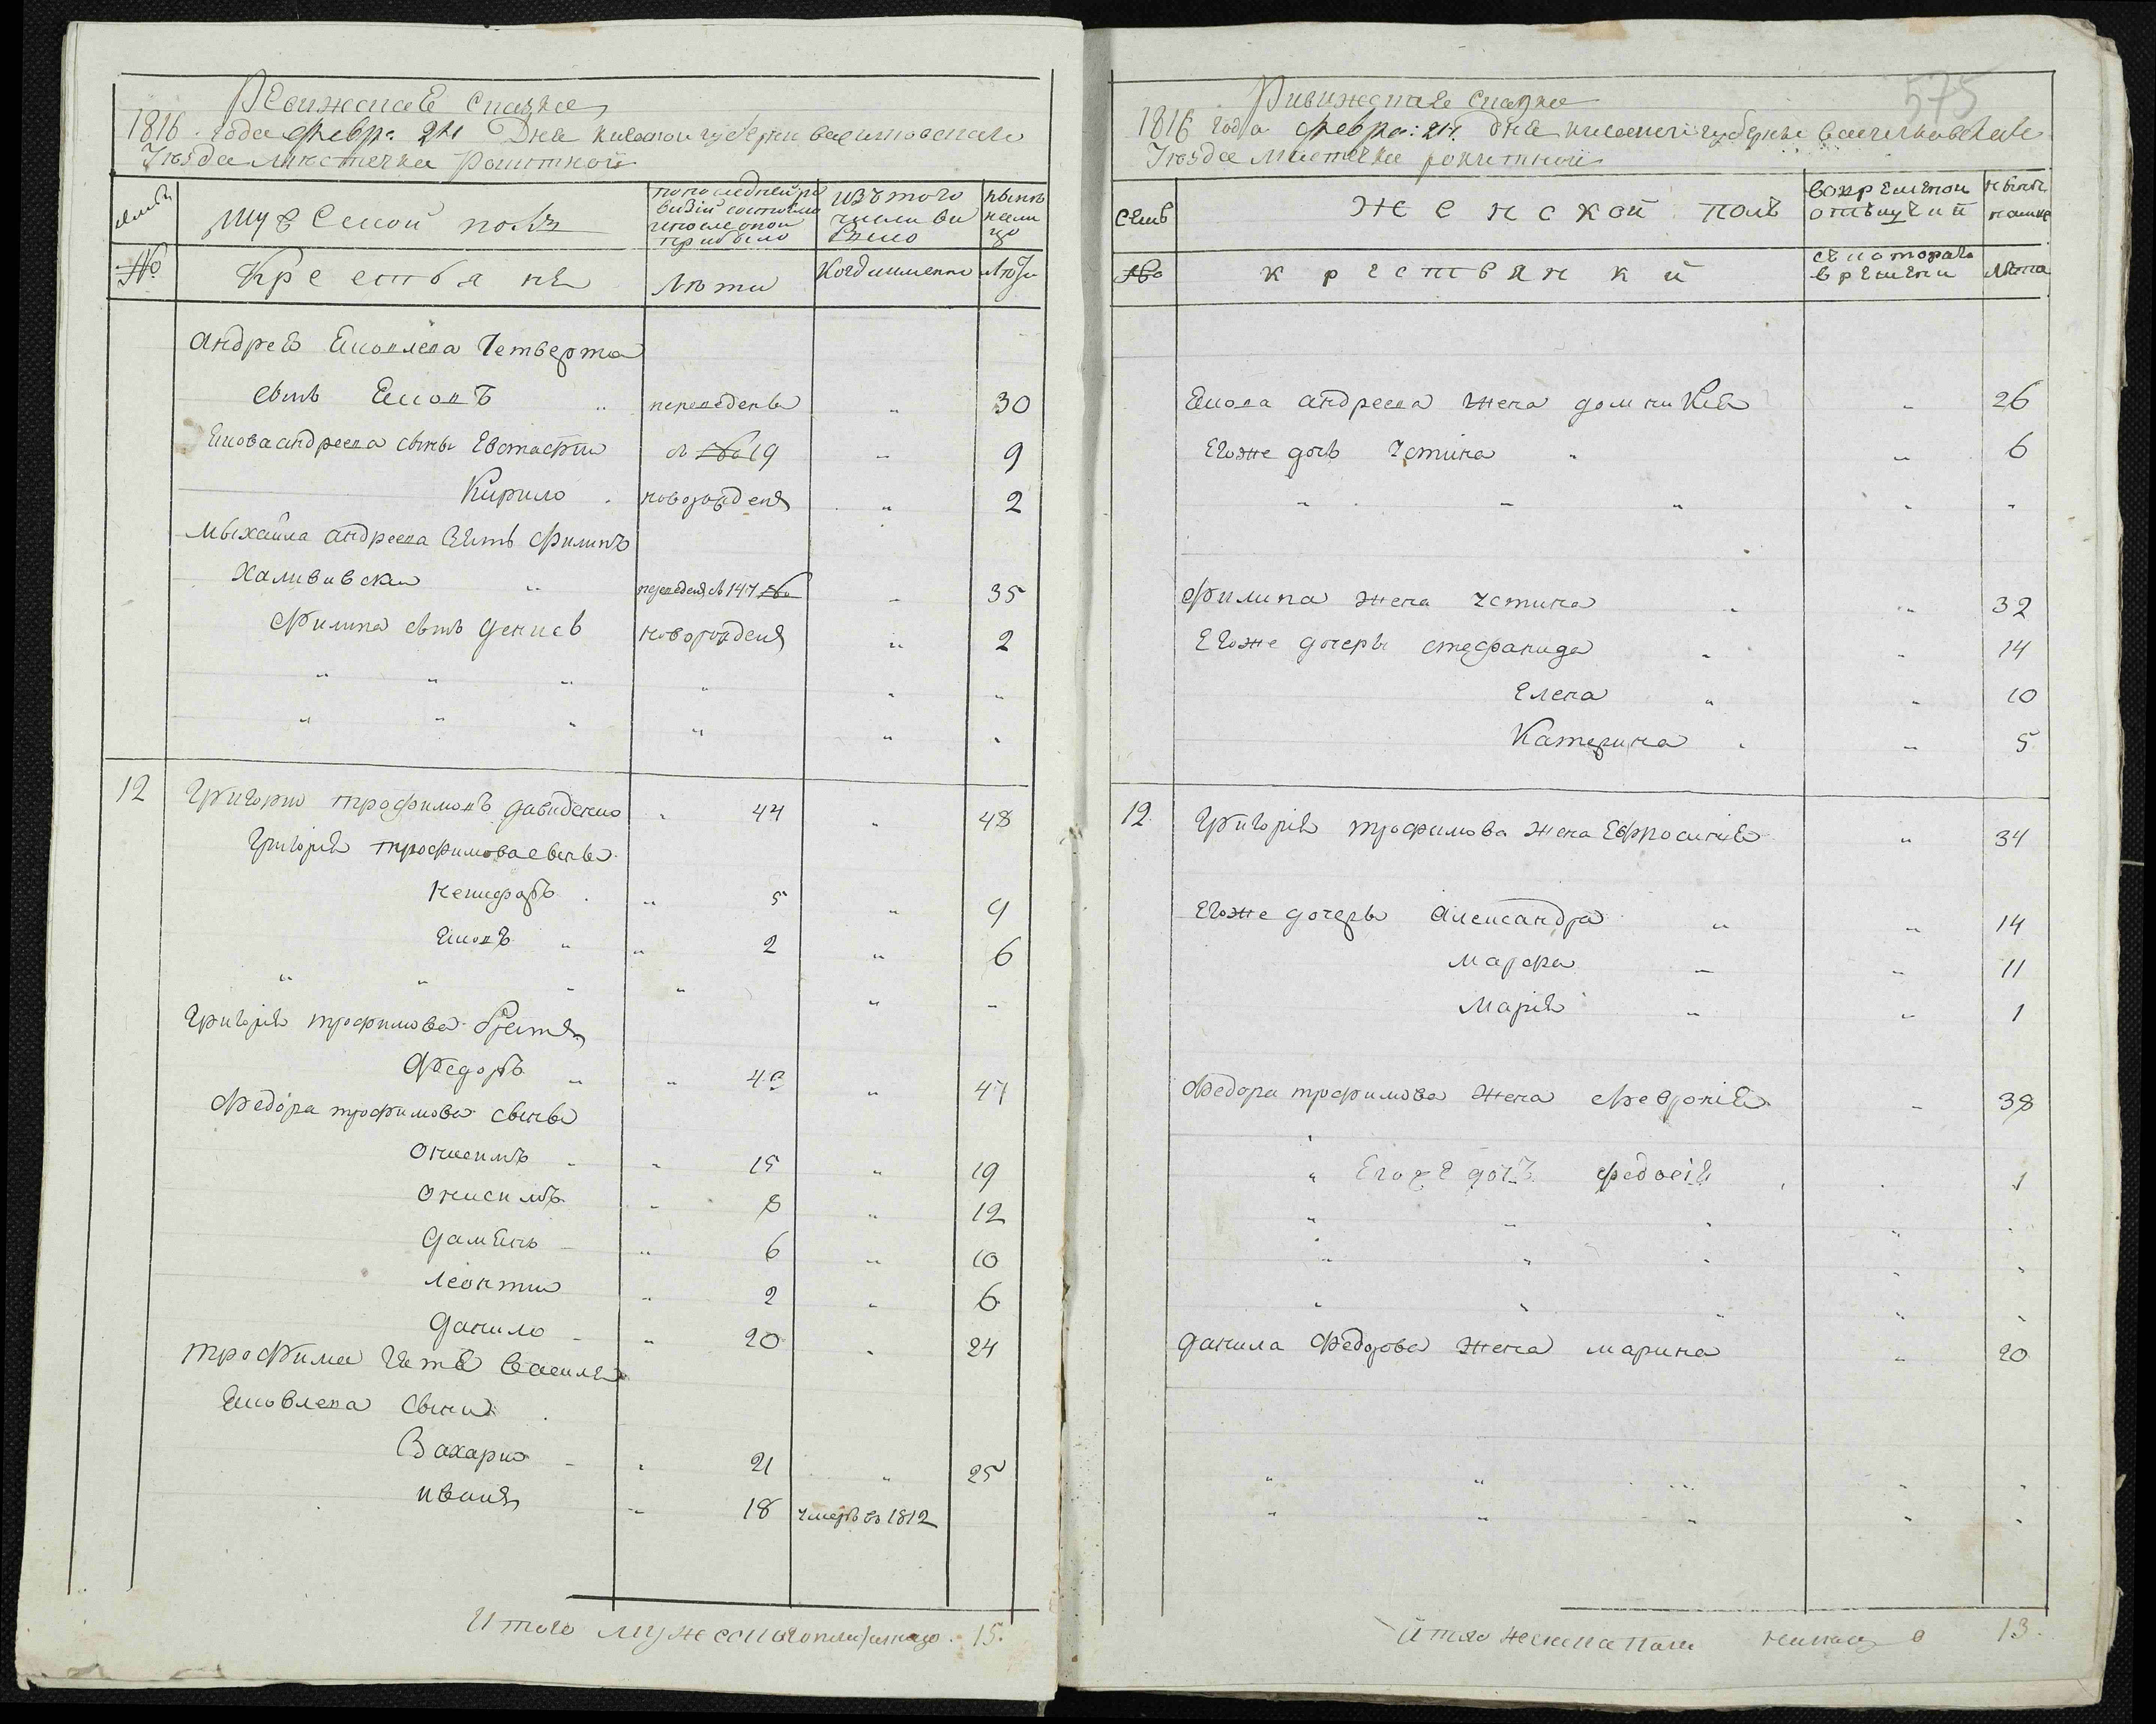 Ревижская Сказка
1816 года февр: 24 Дня киевской губернии василковскаго
Уезда Мистечка Рокитной
семьи
Мужеской полъ
по последней ре
визии состояло
и после оной
прибыло
изъ того
числа вы
было
ныне
на ли
цо
№
Крестьяне
Лѣты
Когда именно
Лѣты
Андрея Яковлева Четверта
сынъ Яковъ " переведены " 30
Якова андреева сыны Евстафии съ № 19 " 9
Кирило новорожденъ " 2
Мыхайла андреева Зять Филипъ
Халививски " переведенъ съ 147 № " 35
Филипа сынъ Денисъ новорожденъ " 2
12 Григорио трофимовъ давиденко " 44 " 48
Григорія трофимова сыны
Кенифоръ " 5 " 9
Яковъ " " 2 " 6
Григорія трофимова братья
Федоръ " " " 47
Федора трофимова сыны
Онисимъ " 15 " 19
Онисимъ " 8 " 12
Дамянъ " 6 " 10
Леонти " 2 " 6
Данило " 20 " 24
Трофима Зятя Василя
Яковлева сыни
Захарио " 21 " 25
Иванъ " 18 умеръ въ 1812
Итого мужескаго пола налицо 15.
575
Ривижская сказка
1816 года февра: 24 дня киевской губернии василковскаго
Уезда Мистечка рокитной
Семъ
Женской полъ
во времяной
отлучки
ныне
на лице
№
крестьянки
съ котораго
времени
Лѣта
Якова андреева жена домникия " 26
Егоже дочь Устина " " 6
Филипа жена Устина " " 32
Егоже дочеры стефанида " " 14
Елена " " 10
Катерина " " 5
12 Григорія трофимова жена Ефросиния " 34
Егоже дочеры Александра " " 14
Марфа " " 11
Марія " " 1
Федора трофимова жена Февронія " 38
" Егоже дочъ федосія 1
Данила Федорова жена марина " 20
Итого женска пола налицо 13.